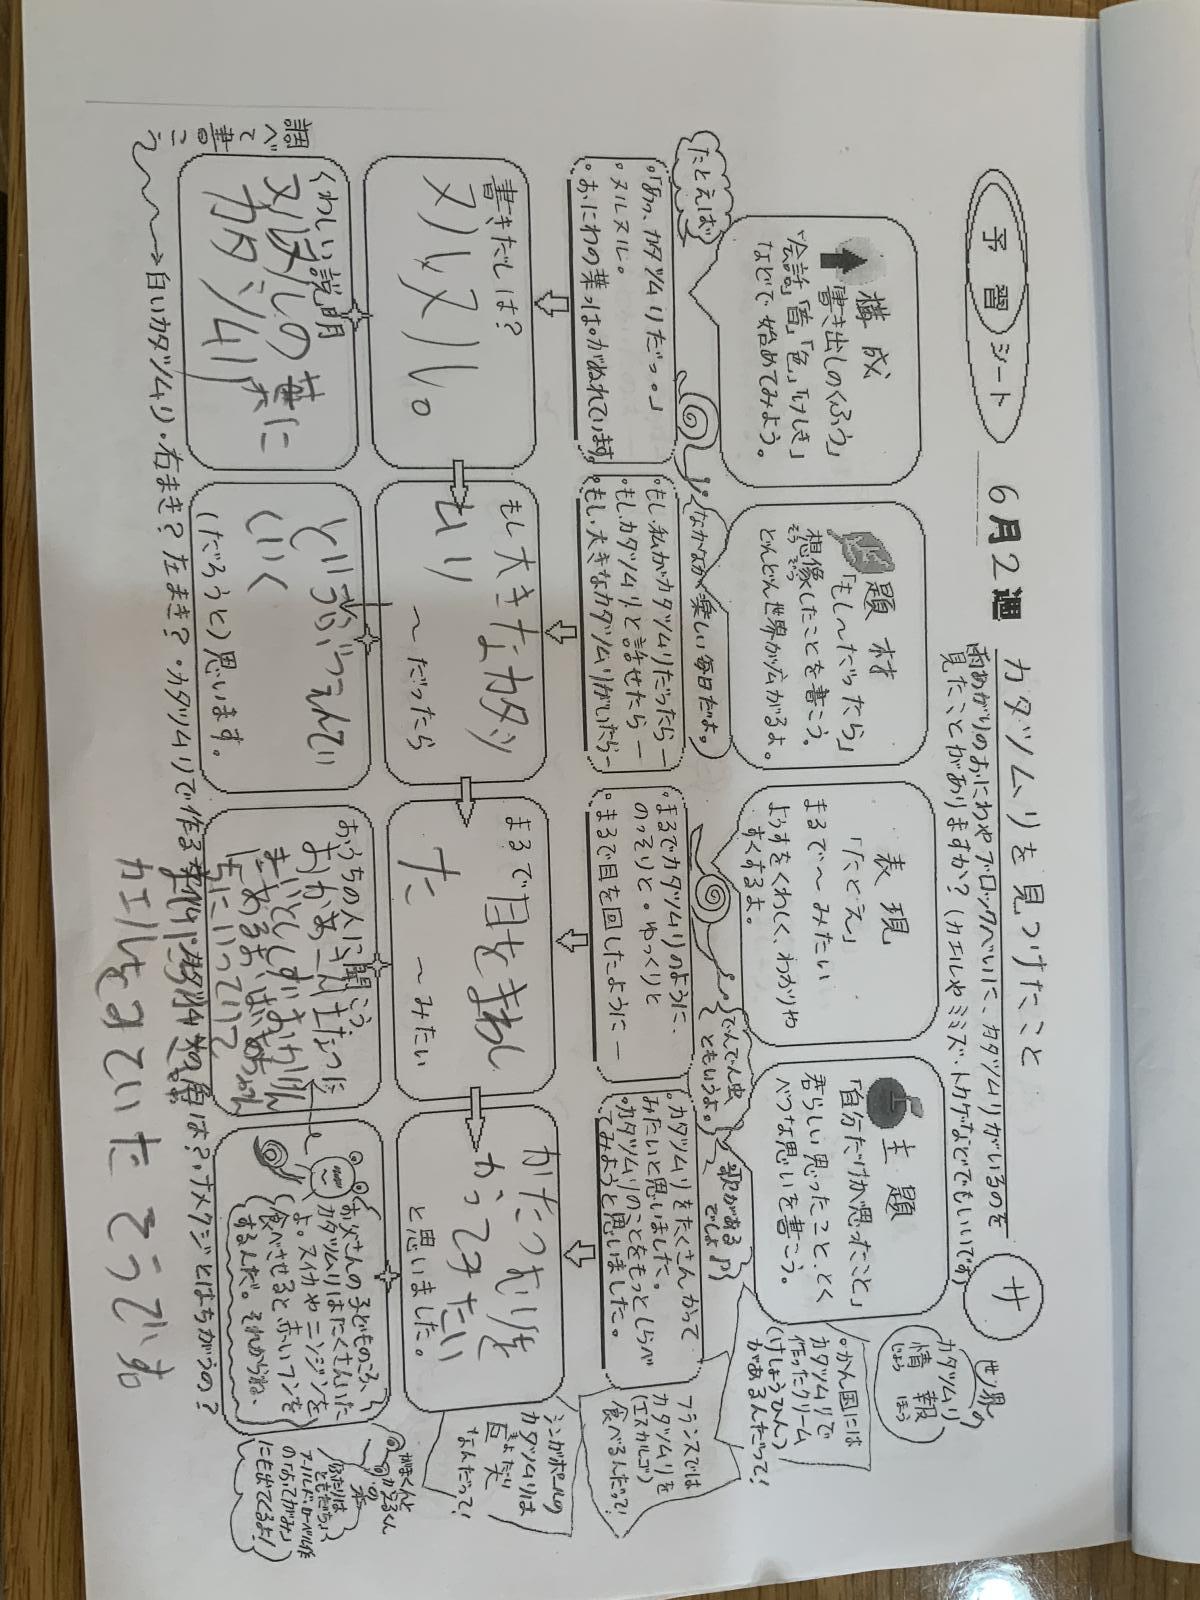 予習シート
6月2週
カタツムリを見つけたこと
雨あがりのおにわやブロックべいに、カタツムリがいるのを
見たことがありますか?(カエルやミミズ・トカゲなどでもいいです)
サ
世界の
カタツムリ
情報
じょうほう
構成
書き出しのくふう
「会話」「音」「色」「けしき」
などで始めてみよう。
題材
「もし~だったら」
想像したことを書こう。
そうぞう
どんどん世界が広がるよ。
表現
「たとえ」
まるで~みたい
ようすをくわしく、わかりや
すくするよ。
主題
「自分だけが思ったこと」
君らしい思ったこと、とく
べつな思いを書こう。
。かん国には
カタツムリで
作ったクリーム
(けしょうひん)
があるんだって!
たとえば
なかなか楽しい毎日だよ。
でんでん虫
ともいうよ。
歌がある
でしょ♪
。「あっ、カタツムリだっ。」
。ヌルヌル。
。おにわの葉っぱがぬれています。
。もし私がカタツムリだったら―
。もしカタツムリと話せたら―
。もし、大きなカタツムリがいたら―
。まるでカタツムリのように、
のっそりと。ゆっくりと
。まるで目を回したように―
。カタツムリをたくさんかって
みたいと思いました。
。カタツムリのことをもっとしらべ
てみようと思いました。
フランスでは
カタツムリを
(エスカルゴ)
食べるんだって!
書きだしは?
ヌルヌル。
もし大きなカタツ
ムリ
~だったら
まるで目をまわし
た
~みたい
かたつむりを
かってみたい
と思いました。
シンガポールの
カタツムリは
まよだり
なんだって!
くわしい説明
カタツムリ
(だろうと)思います。
おうちの人に聞こう
お父さんの子どものころ、
カタツムリはたくさんいた
よ。スイカやニンジンを
食べさせると、赤いフンを
するんだ。それからね、
がまくんと
かえるくん
の本
「ふたりは
ともだち」
アーノルド・ローベル作
の「おてがみ」
にも出てくるよ!
調べて書こう
白いカタツムリ・右まき?左まき?・カタツムリで作る
角は?・ナメクジとはちがうの?
カエルをみていたそうです